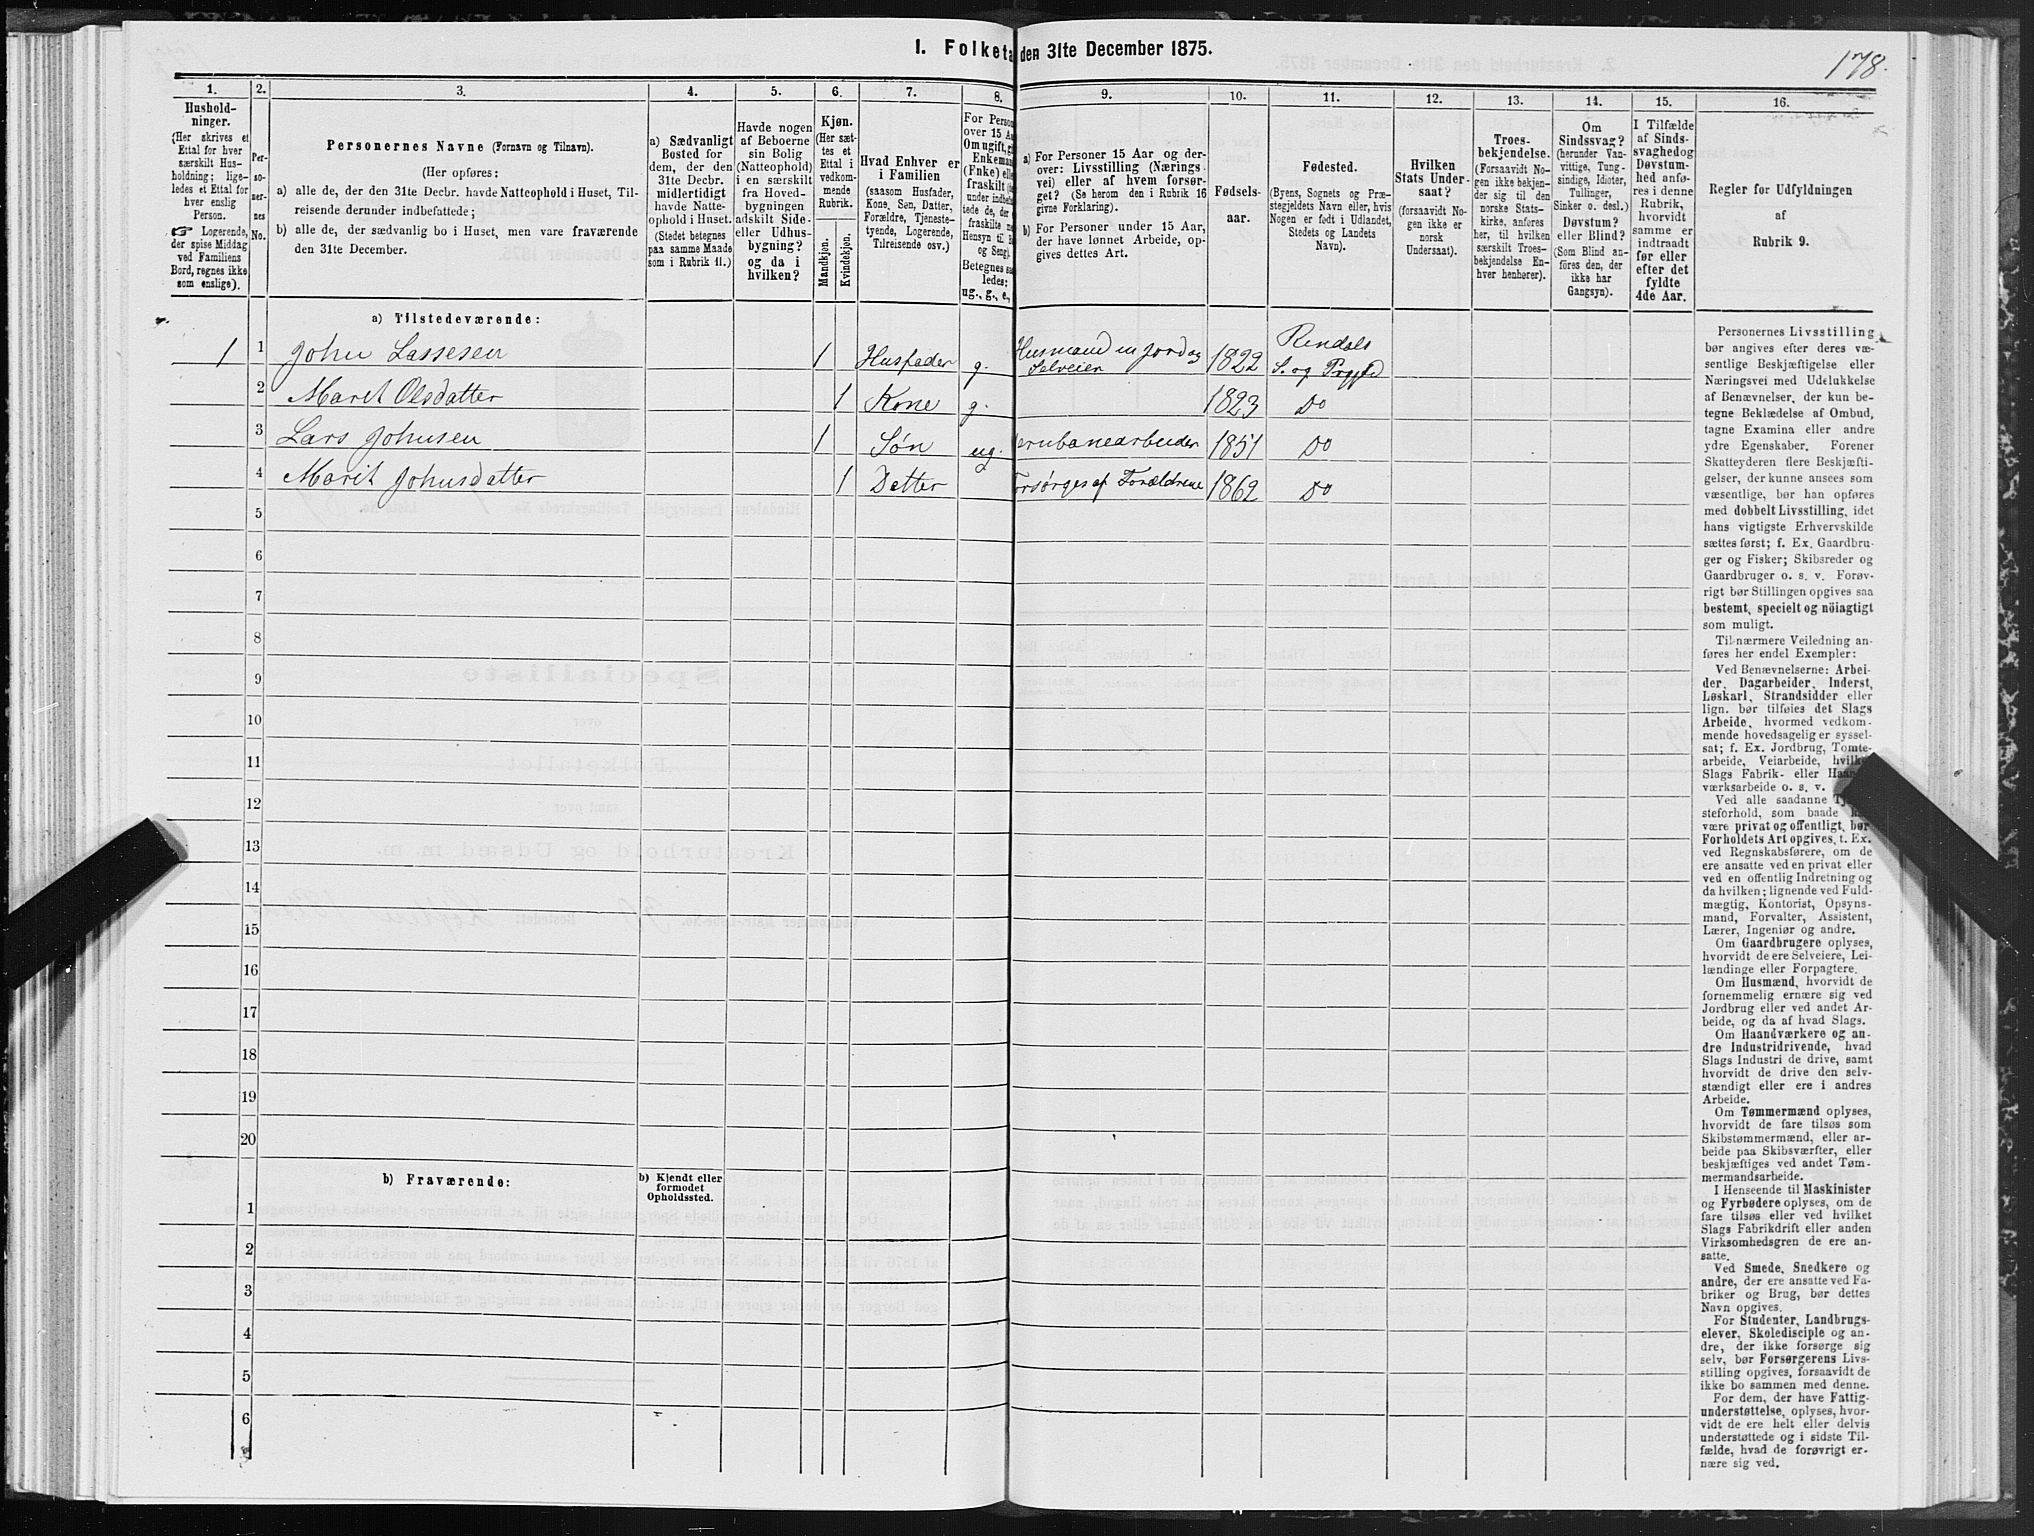 I. Folketa den 31te December 1875.
178.
1. 2. 3. 4. 5. 6. 7. 8. 9. 10. 11. 12. 13. 14. 15. 16.
Hushold-
ninger.
(Her skrives et
Ettal for hver
særskilt Hus-
holdning; lige-
ledes et Ettal for
hver enslig
Person.
☞ Logerende,
der spise Middag
ved Familiens
Bord, regnes ikke
som enslige).
Per-
so-
ner-
nes
No.
Personernes Navne (Fornavn og Tilnavn).
(Her opføres:
a) alle de, der den 31te Decbr. havde Natteophold i Huset, Til-
reisende derunder indbefattede;
b) alle de, der sædvanlig bo i Huset, men vare fraværende
den 31te December.
a) Sædvanligt
Bosted for
dem, der den
31te Decbr.
midlertidigt
havde Natte-
ophold i Huset.
(Stedet betegnes
paa samme Maade
som i Rubrik 11.)
Havde nogen
af Beboerne
sin Bolig
(Natteophold)
i en særskilt
fra Hoved-
bygningen
adskilt Side-
eller Udhus-
bygning?
og da i
hvilken?
Kjøn.
(Her sæt-
tes et
Ettal i
vedkom-
mende
Rubrik.
Mandkjøn.
Kvindekjøn.
Hvad Enhver er
i Familien
(saasom Husfader,
Kone, Søn, Datter,
Forældre, Tjeneste-
tyende, Logerende,
Tilreisende osv.)
For Person
over 15 Aa
Om ugift, gi
Enkeman
(Enke) elle
fraskilt (de
under indbefa
tede de, der e
fraskilte
Hensyn til B
og Seng).
Betegnes saa
ledes:
ug., g., e.,
a) For Personer 15 Aar og der-
over: Livsstilling (Nærings-
vei) eller af hvem forsør-
get? (Se herom den i Rubrik 16
givne Forklaring).
b) For Personer under 15 Aar,
der have lønnet Arbeide, op-
gives dettes Art.
Fødsels-
aar.
Fødested.
(Byens, Sognets og Præ-
stegjeldets Navn eller, hvis
Nogen er født i Udlandet,
Stedets og Landets
Navn).
Hvilken
Stats Under-
saat?
(forsaavidt No-
gen ikke er
norsk
Undersaat).
Troes-
bekjendelse.
(Forsaavidt No-
gen ikke bekjen-
der sig til den
norske Stats-
kirke, anføres
her, til hvilken
særskilt Troes-
bekjendelse En-
hver henhører).
Om
Sindssvag?
(herunder Van-
vittige, Tung-
sindige, Idioter,
Tullinger,
Sinker o. desl.)
Døvstum?
eller Blind?
(Som Blind an-
føres den, der
ikke har
Gangsyn).
I Tilfælde
af Sinds-
svaghed og
Døvstum-
hed anfø-
res i denne
Rubrik,
hvorvidt
samme er
indtraadt
før eller
efter det
fyldte
4de Aar.
Regler for Udfyldningen
af
Rubrik 9.
a) Tilstedeværende:
1 1 John Lassesen 1 Husfader g. Husmand m jord og Selveier 1822 Rendals S. og Prgjld
2 Marit Olsdatter 1 Kone g. 1823 Do
3 Lars Johnsen 1 Søn ug. ernbanearbeider 1851 Do
4 Marit Johnsdatter 1 Datter Forsørges af Forældrene 1862 Do
5
6
7
8
9
10
11
12
13
14
15
16
17
18
19
20
b) Fraværende:
b) Kjendt eller
formodet
Opholdssted.
1
2
3
4
5
6
Personernes Livsstilling
bør angives efter deres væ-
sentlige Beskjæftigelse eller
Næringsvei med Udelukkelse
af Benævnelser, der kun be-
tegne Beklædelse af Ombud,
tagne Examina eller andre
ydre Egenskaber. Forener
Skatteyderen flere Beskjæfti-
gelser, der kunne ansees som
væsentlige, bør han opføres
med dobbelt Livsstilling, idet
hans vigtigste Erhvervskilde
sættes først; f. Ex. Gaardbru-
ger og Fisker; Skibsreder og
Gaardbruger o. s. v. Forøv-
rigt bør Stillingen opgives saa
bestemt, specielt og nöiagtigt
som muligt.
Til nærmere Veiledning an-
føres her endel Exempler:
Ved Benævnelserne: Arbei-
der, Dagarbeider, Inderst,
Løskarl, Strandsidder eller
lign. bør tilføies det Slags
Arbeide, hvormed vedkom-
mende hovedsagelig er syssel-
sat; f. Ex. Jordbrug, Tomte-
arbeide, Veiarbeide, hvilke
Slags Fabrik- eller Haand
værksarbeide o. s. v.
Ved alle saadanne Tj
steforhold, som baade k
være privat og offentligt, bør
Forholdets Art opgives, t. Ex.
ved Regnskabsførere, om de
ere ansatte ved en privat eller
ved en offentlig Indretning og
da hvilken; lignende ved Fuld-
mægtig, Kontorist, Opsyns-
mand, Forvalter, Assistent,
Lærer, Ingeniør og andre.
Om Gaardbrugere oplyses,
hvorvidt de ere Selveiere, Lei-
lændinge eller Forpagtere.
Om Husmænd, hvorvidt de
fornemmelig ernære sig ved
Jordbrug eller ved andet Ar-
beide, og da af hvad Slags.
Om Haandværkere og an-
dre Industridrivende, hvad
Slags Industri de drive, samt
hvorvidt de drive den selv-
stændigt eller ere i andres
Arbeide.
Om Tømmermænd oplyses,
hvorvidt de fare tilsøs som
Skibstømmermænd, eller ar-
beide paa Skibsværfter, eller
beskjæftiges ved andet Tøm-
mermandsarbeide.
I Henseende til Maskinister
og Fyrbødere oplyses, om de
fare tilsøs eller ved hvilket
Slags Fabrikdrift eller anden
Virksomhedsgren de ere an-
satte.
Ved Smede, Snedkere og
andre, der ere ansatte ved Fa-
briker og Brug, bør dettes
Navn opgives.
For Studenter, Landbrugs-
elever, Skoledisciple og an-
dre, der ikke forsørge sig
selv, bør Forsørgerens Livs-
stilling opgives, forsaavidt de
ikke bo sammen med denne.
For dem, der have Fattig-
understøttelse, oplyses, hvor-
vidt de ere helt eller delvis
understøttede og i sidste Til-
fælde, hvad de forøvrigt er-
nære sig ved.